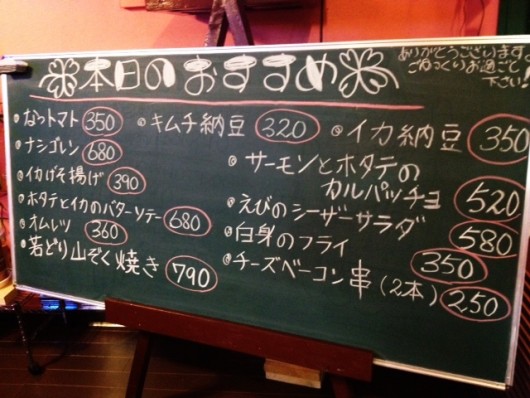 本日のおすすめ
ありがとうございます。
ごゆっくりお過ごし
下さい
なっトマト 350
キムチ納豆 320
イカ納豆 350
ナシゴレン 680
イカげそ揚げ 390
ホタテとイカのバターソテー 680
オムレツ 360
若どり山ぞく焼き 790
サーモンとホタテの
カルパッチョ 520
えびのシーザーサラダ 580
白身のフライ 350
チーズベーコン串(2本) 250